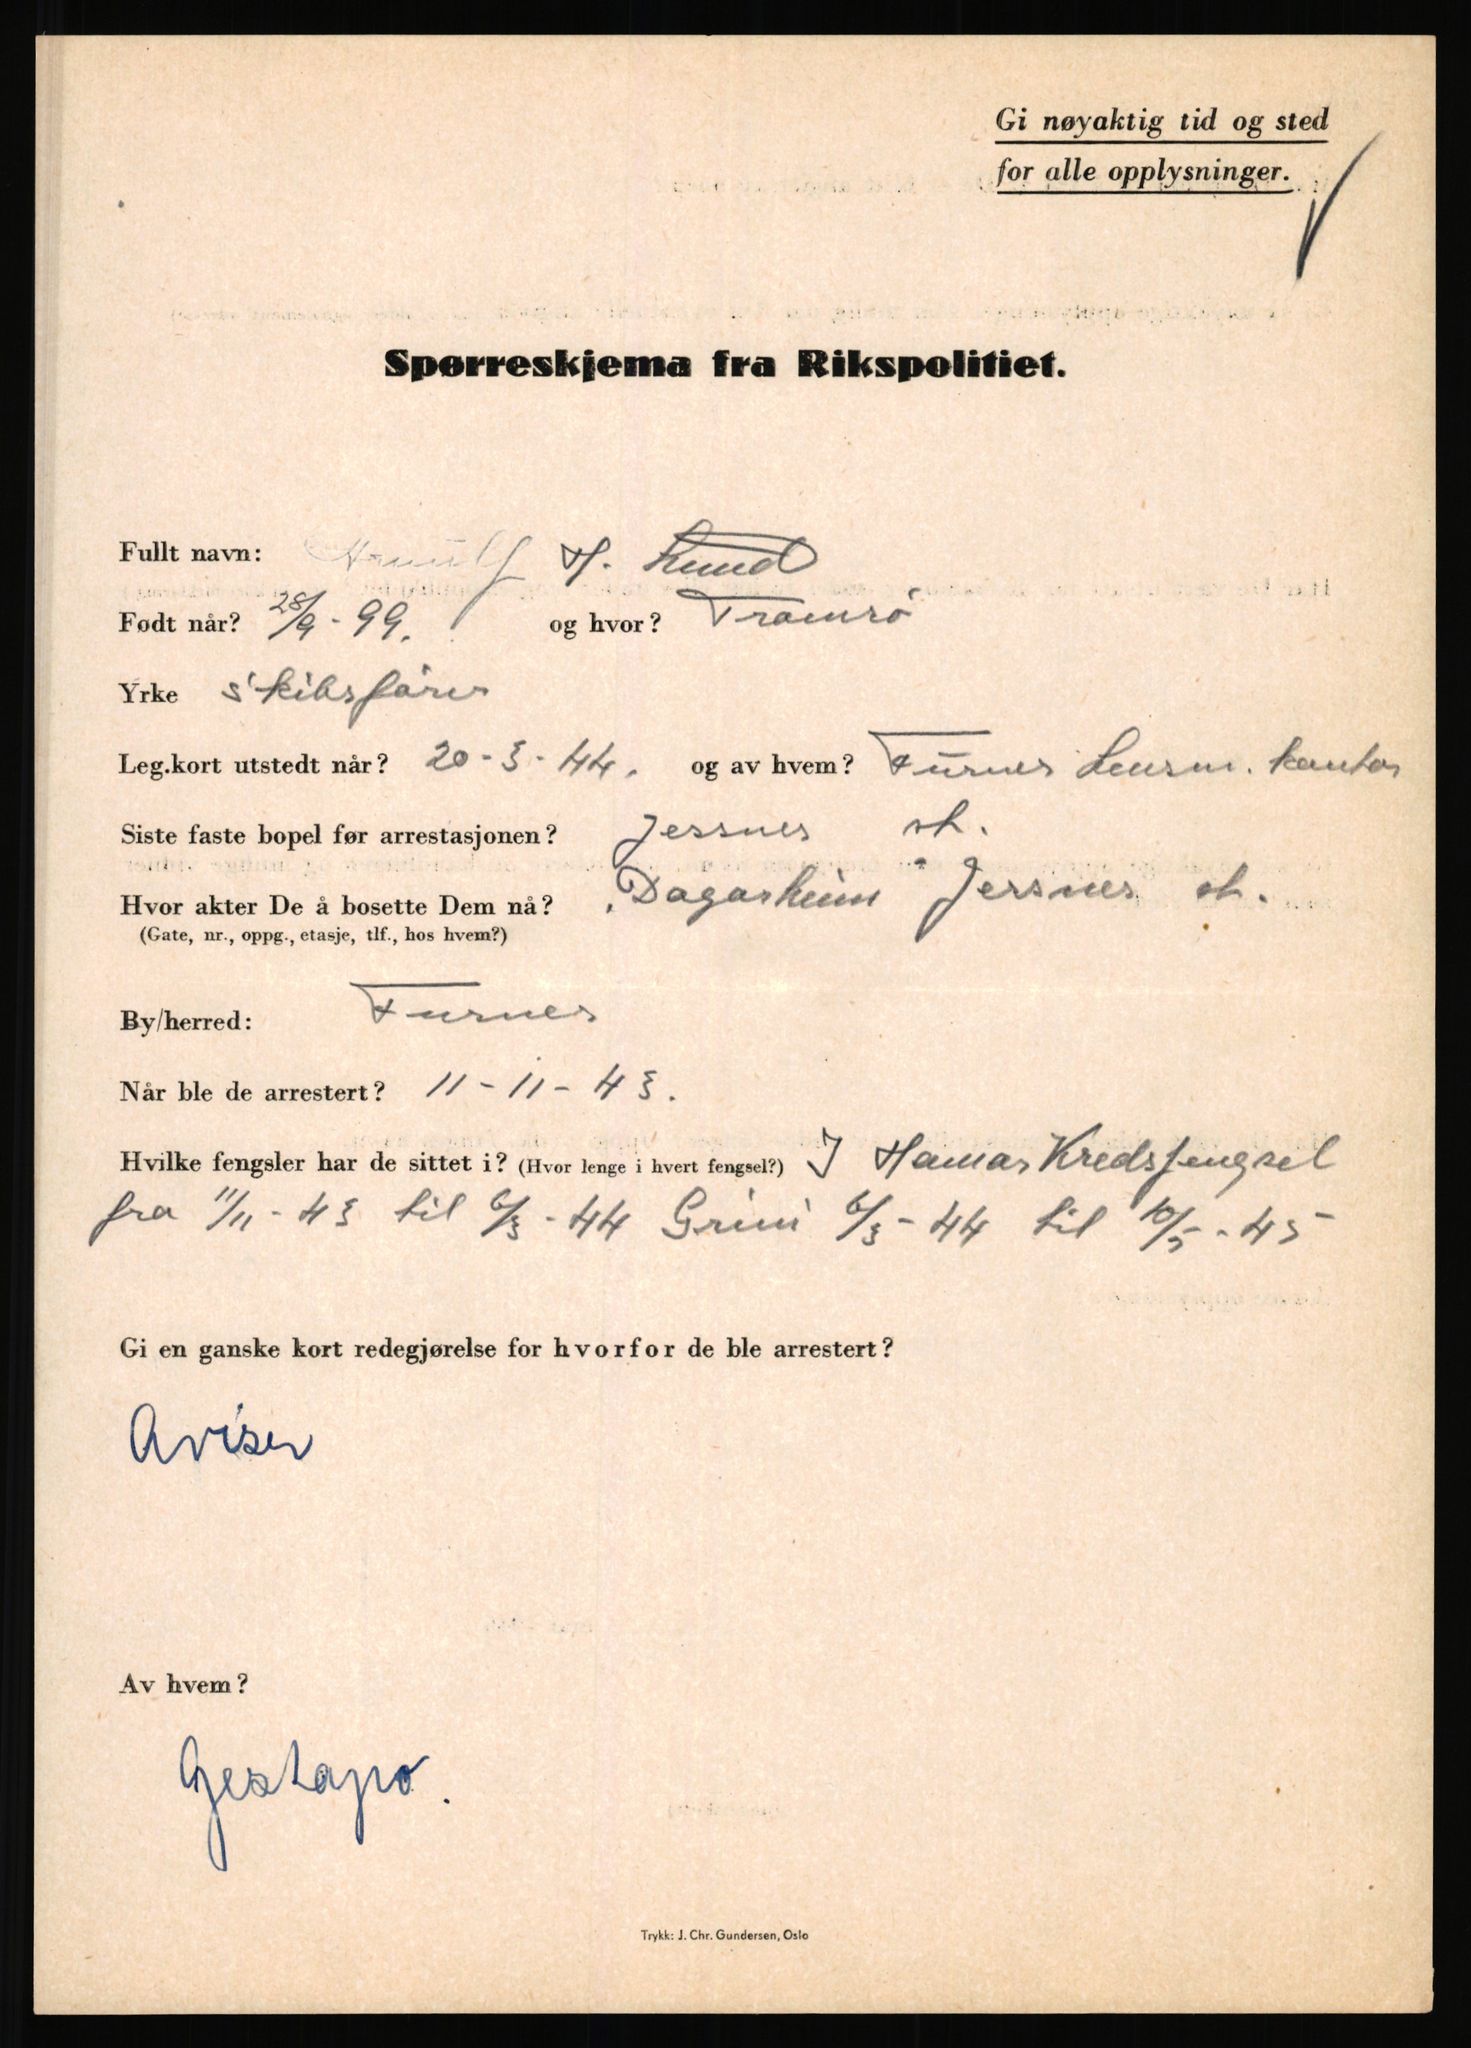 Gi nøyaktig tid og sted
for alle opplysninger.
Spørreskjema fra Rikspolitiet.
Fullt navn: Arnulf H. Lund
Født når? 28/9 - 99. og hvor? Tromsø
Yrke Skibsfører
Leg.kort utstedt når? 20-3-44. og av hvem? Furnes Lensm. kontor
Siste faste bopel før arrestasjonen? Jessnes st.
Hvor akter De å bosette Dem nå? Dagasheim Jessnes st.
(Gate, nr., oppg., etasje, tlf., hos hvem?)
By/herred: Furnes
Når ble de arrestert? 11-11-43.
Hvilke fengsler har de sittet i? (Hvor lenge i hvert fengsel?) I Hamar Kredsfengsel
fra 11/11-43 til 6/3-44 Grini 6/3-44 til 10/5-45
Gi en ganske kort redegjørelse for hvorfor de ble arrestert?
Aviser
Av hvem?
Gestapo.
Trykk: J. Chr. Gundersen, Oslo